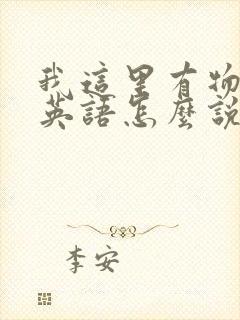 我這里有物
英語怎麼說
李安